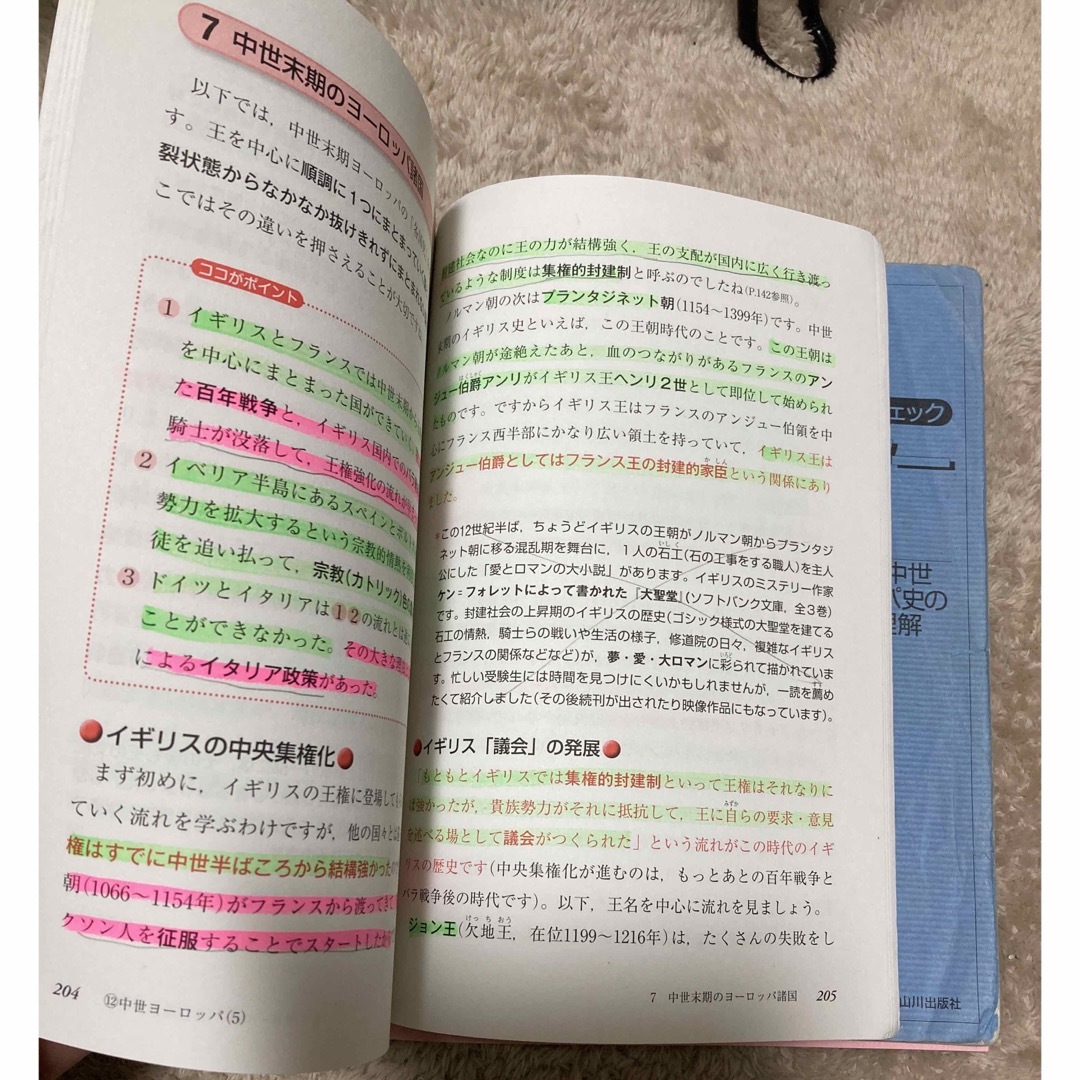 7 中世末期のヨーロッパ諸国
以下では，中世末期ヨーロッパの「各国
す。王を中心に順調に1つにまとまっていく
裂状態からなかなか抜けきれずにまとまれな
こではその違いを押さえることが大切です
ココがポイント
① イギリスとフランスでは中世末期
を中心にまとまった国ができてい
た百年戦争と，イギリス国内での
騎士が没落して，王権強化の流れが
② イベリア半島にあるスペインとポル
勢力を拡大するという宗教的情熱を
徒を追い払って，宗教(カトリック)色の
③ ドイツとイタリアは①②の流れとは
ことができなかった。その大きな理
によるイタリア政策があった。
●イギリスの中央集権化●
まず初めに，イギリスの王権に登場して
ていく流れを学ぶわけですが，他の国々と
権はすでに中世半ばころから結構強かった
朝(1066〜1154年)がフランスから渡ってき
クソン人を征服することでスタートしたか
204 ⑫中世ヨーロッパ(5)
封建社会なのに王の力が結構強く，王の支配が国内に広く行き渡っ
ているような制度は集権的封建制と呼ぶのでしたね(P.142参照)。
ノルマン朝の次はプランタジネット朝(1154〜1399年)です。中世
末期のイギリス史といえば，この王朝時代のことです。この王朝は
ノルマン朝が途絶えたあと，血のつながりがあるフランスのアン
ジュー伯爵アンリがイギリス王ヘンリ2世として即位して始められ
たものです。ですからイギリス王はフランスのアンジュー伯領を中
心にフランス西半部にかなり広い領土を持っていて，イギリス王は
アンジュー伯爵としてはフランス王の封建的家臣という関係にあり
ました。
この12世紀半ば，ちょうどイギリスの王朝がノルマン朝からプランタジ
ネット朝に移る混乱期を舞台に，1人の石工(石の工事をする職人)を主人
公にした「愛とロマンの大小説」があります。イギリスのミステリー作家
ケン＝フォレットによって書かれた『大聖堂』(ソフトバンク文庫，全3巻)
です。封建社会の上昇期のイギリスの歴史(ゴシック様式の大聖堂を建てる
石工の情熱，騎士らの戦いや生活の様子，修道院の日々，複雑なイギリス
とフランスの関係などなど)が，夢・愛・大ロマンに彩られて描かれていま
す。忙しい受験生には時間を見つけにくいかもしれませんが，一読を薦め
たくて紹介しました(その後続刊が出されたり映像作品にもなっています)。
●イギリス「議会」の発展●
「もともとイギリスでは集権的封建制といって王権はそれなりに
は強かったが，貴族勢力がそれに抵抗して，王に自らの要求・意見
を述べる場として議会がつくられた」という流れがこの時代のイギ
リスの歴史です(中央集権化が進むのは，もっとあとの百年戦争と
バラ戦争後の時代です)。以下，王名を中心に流れを見ましょう。
ジョン王(欠地王，在位1199〜1216年)は，たくさんの失敗をし
7 中世末期のヨーロッパ諸国 205
ェック
中世
パ史の
理解
山川出版社